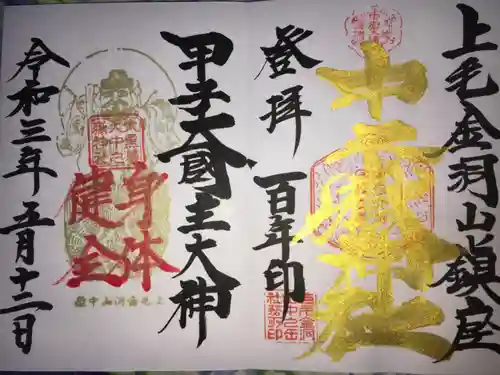 上毛金洞山鎮座
中之嶽神社
登拝
百年印
甲子大國主大神
身体
健全
令和三年五月十二日